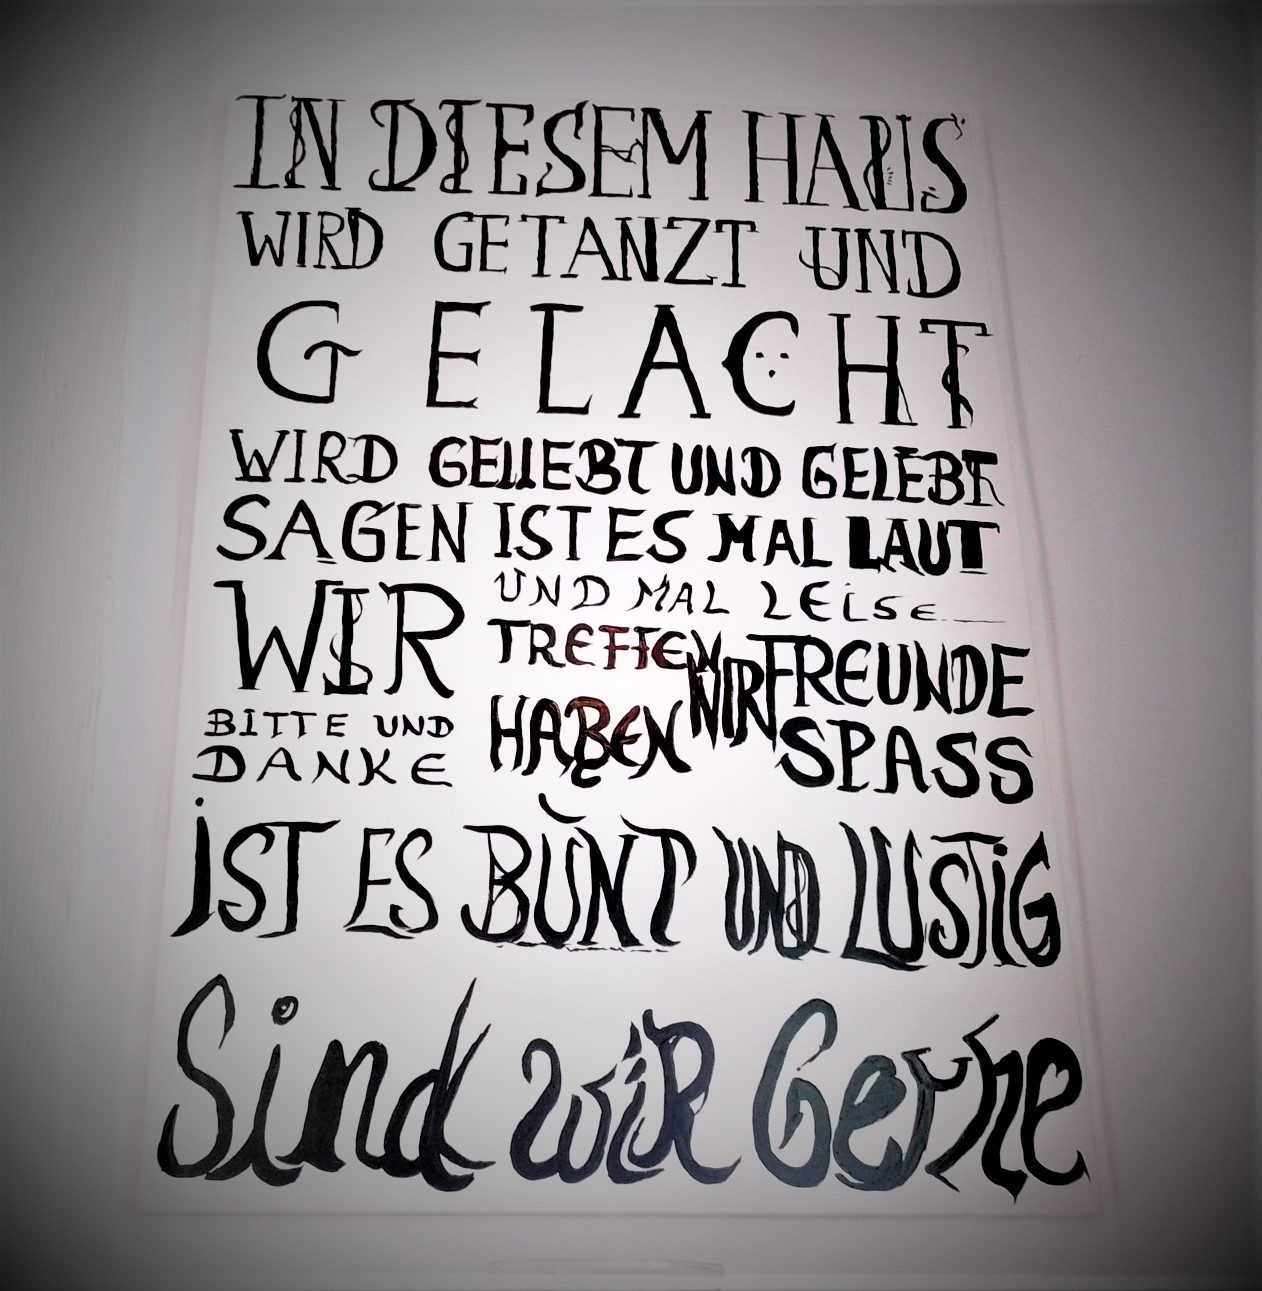 IN DIESEM HAUS
WIRD GETANZT UND
GELACHT
WIRD GELIEBT UND GELEBT
SAGEN IST ES MAL LAUT
WIR UND MAL LEISE
TREFFEN WIR FREUNDE
BITTE UND HABEN SPASS
DANKE
IST ES BUNT UND LUSTIG
Sind wir Gerne